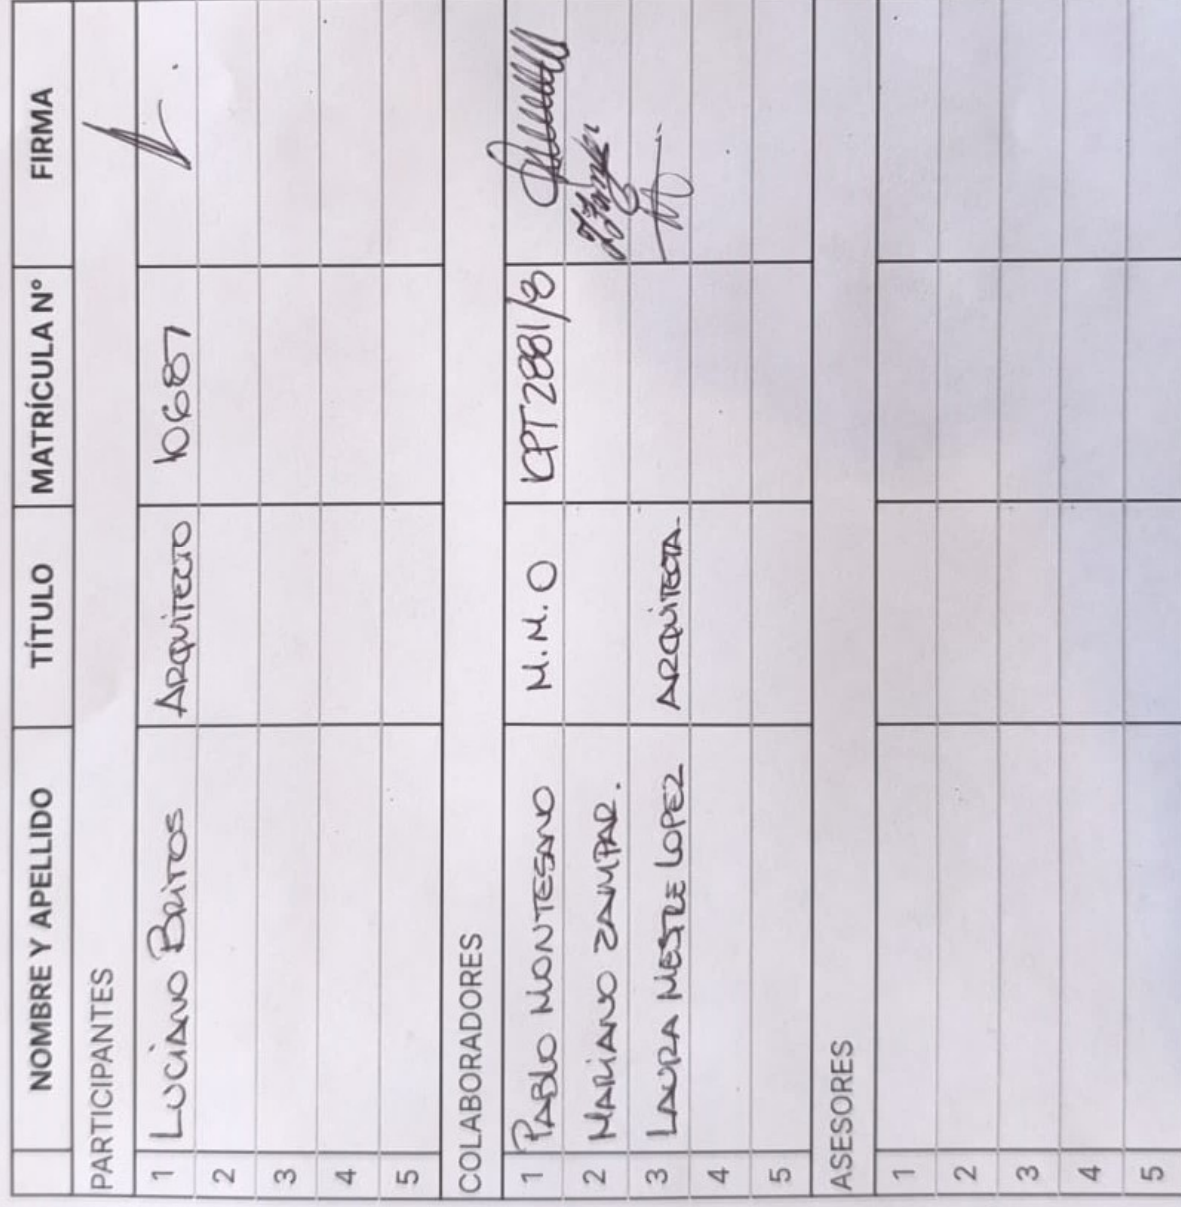 NOMBRE Y APELLIDO TÍTULO MATRÍCULA N° FIRMA
PARTICIPANTES
1 LUCIANO BRITOS ARQUITECTO 10687
2
3
4
5
COLABORADORES
1 PABLO MONTESANO M.M.O KPT2881/8
2 MARIANO ZAMPAR.
3 LAURA MESTRE LOPEZ ARQUITECTA.
4
5
ASESORES
1
2
3
4
5